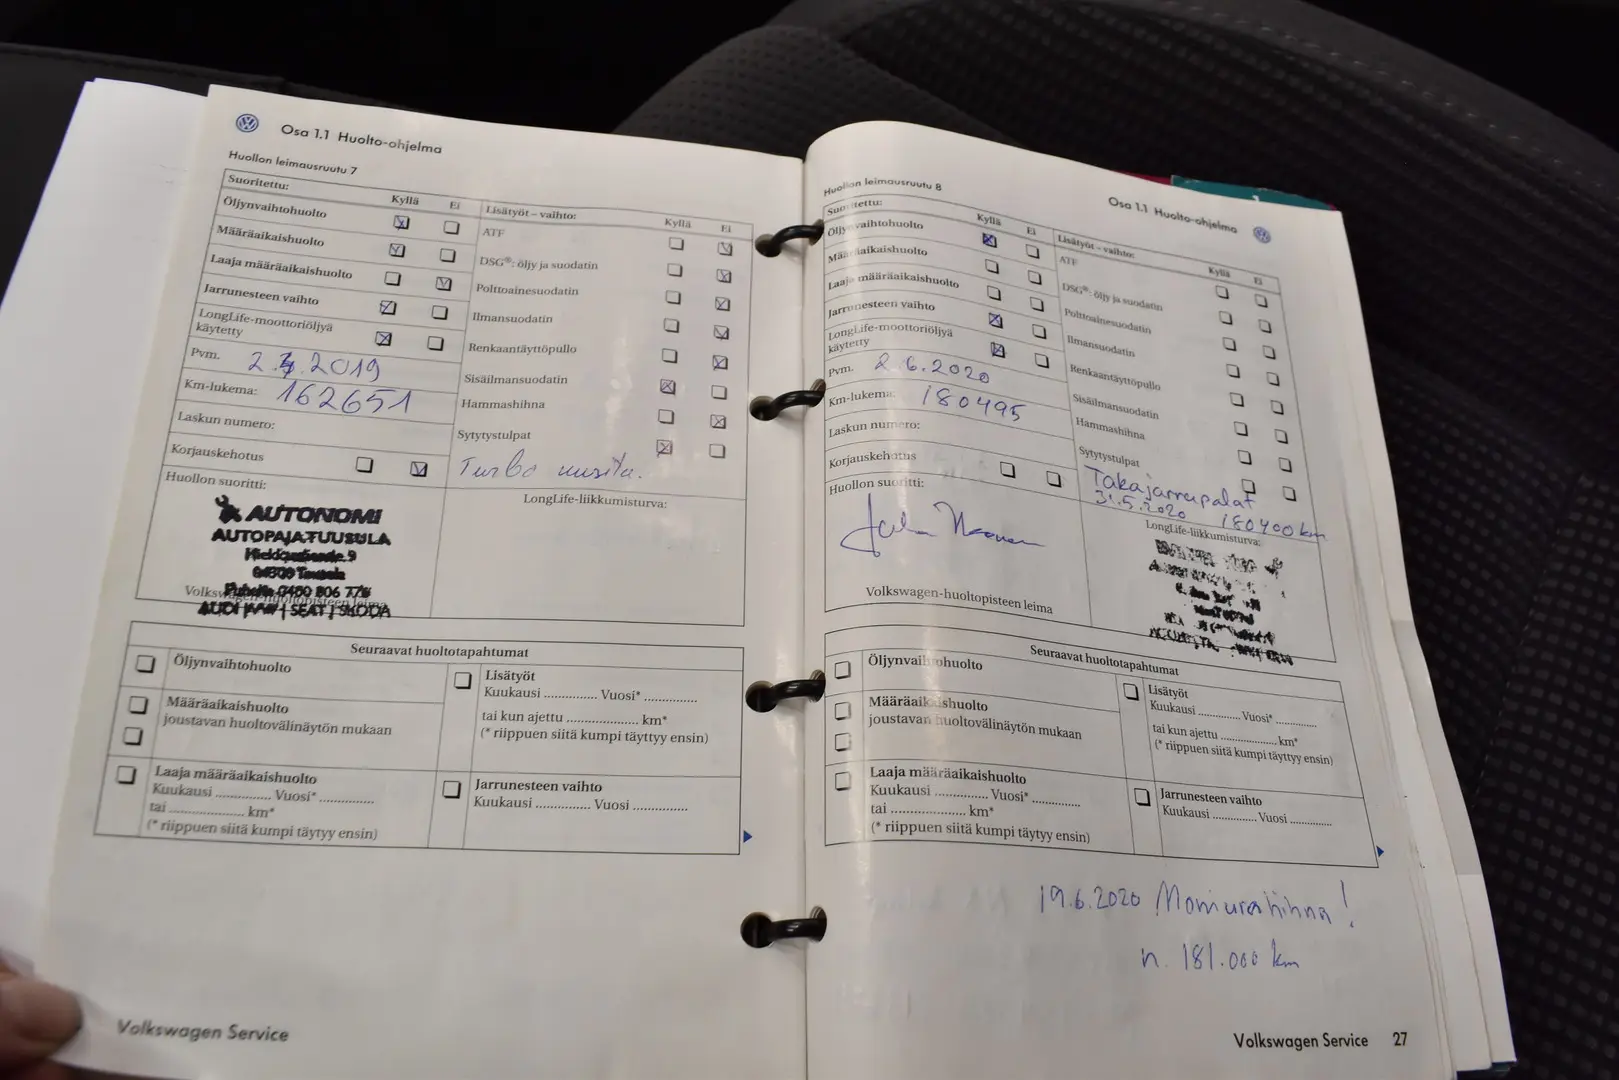 Osa 1.1 Huolto-ohjelma
Huollon leimausruutu 7
Suoritettu:
Kyllä Ei
Öljynvaihtohuolto
Määräaikaishuolto
Laaja määräaikaishuolto
Jarrunesteen vaihto
LongLife-moottoriöljyä
käytetty
Pvm. 2.4.2019
Km-lukema: 162651
Laskun numero:
Korjauskehotus
Huollon suoritti:
AUTONOMI
AUTOPAJA-TUUSULA
04300 Tuusula
Puhelin 0400 806 778
Volkswagen-huoltopisteen leima
AUDI | VW | SEAT | SKODA
Lisätyöt – vaihto:
Kyllä Ei
ATF
DSG®: öljy ja suodatin
Polttoainesuodatin
Ilmansuodatin
Renkaantäyttöpullo
Sisäilmansuodatin
Hammashihna
Sytytystulpat
Turbo uusittu.
LongLife-liikkumisturva:
Seuraavat huoltotapahtumat
Öljynvaihtohuolto
Määräaikaishuolto
joustavan huoltovälinäytön mukaan
Laaja määräaikaishuolto
Kuukausi .............. Vuosi* ..............
tai ................... km*
(* riippuen siitä kumpi täytyy ensin)
Lisätyöt
Kuukausi .............. Vuosi* ..............
tai kun ajettu ................... km*
(* riippuen siitä kumpi täyttyy ensin)
Jarrunesteen vaihto
Kuukausi .............. Vuosi ..............
Volkswagen Service
Osa 1.1 Huolto-ohjelma
Huollon leimausruutu 8
Suoritettu:
Kyllä Ei
Öljynvaihtohuolto
Määräaikaishuolto
Laaja määräaikaishuolto
Jarrunesteen vaihto
LongLife-moottoriöljyä
käytetty
Pvm. 2.6.2020
Km-lukema: 180495
Laskun numero:
Korjauskehotus
Huollon suoritti:
Volkswagen-huoltopisteen leima
Lisätyöt – vaihto:
Kyllä Ei
ATF
DSG®: öljy ja suodatin
Polttoainesuodatin
Ilmansuodatin
Renkaantäyttöpullo
Sisäilmansuodatin
Hammashihna
Sytytystulpat
Takajarrupalat
31.5.2020 180400 km
LongLife-liikkumisturva:
Seuraavat huoltotapahtumat
Öljynvaihtohuolto
Määräaikaishuolto
joustavan huoltovälinäytön mukaan
Laaja määräaikaishuolto
Kuukausi .............. Vuosi* ..............
tai ................... km*
(* riippuen siitä kumpi täytyy ensin)
Lisätyöt
Kuukausi .............. Vuosi* ..............
tai kun ajettu ................... km*
(* riippuen siitä kumpi täyttyy ensin)
Jarrunesteen vaihto
Kuukausi .............. Vuosi ..............
19.6.2020 Moniurahihna!
n. 181.000 km
Volkswagen Service 27